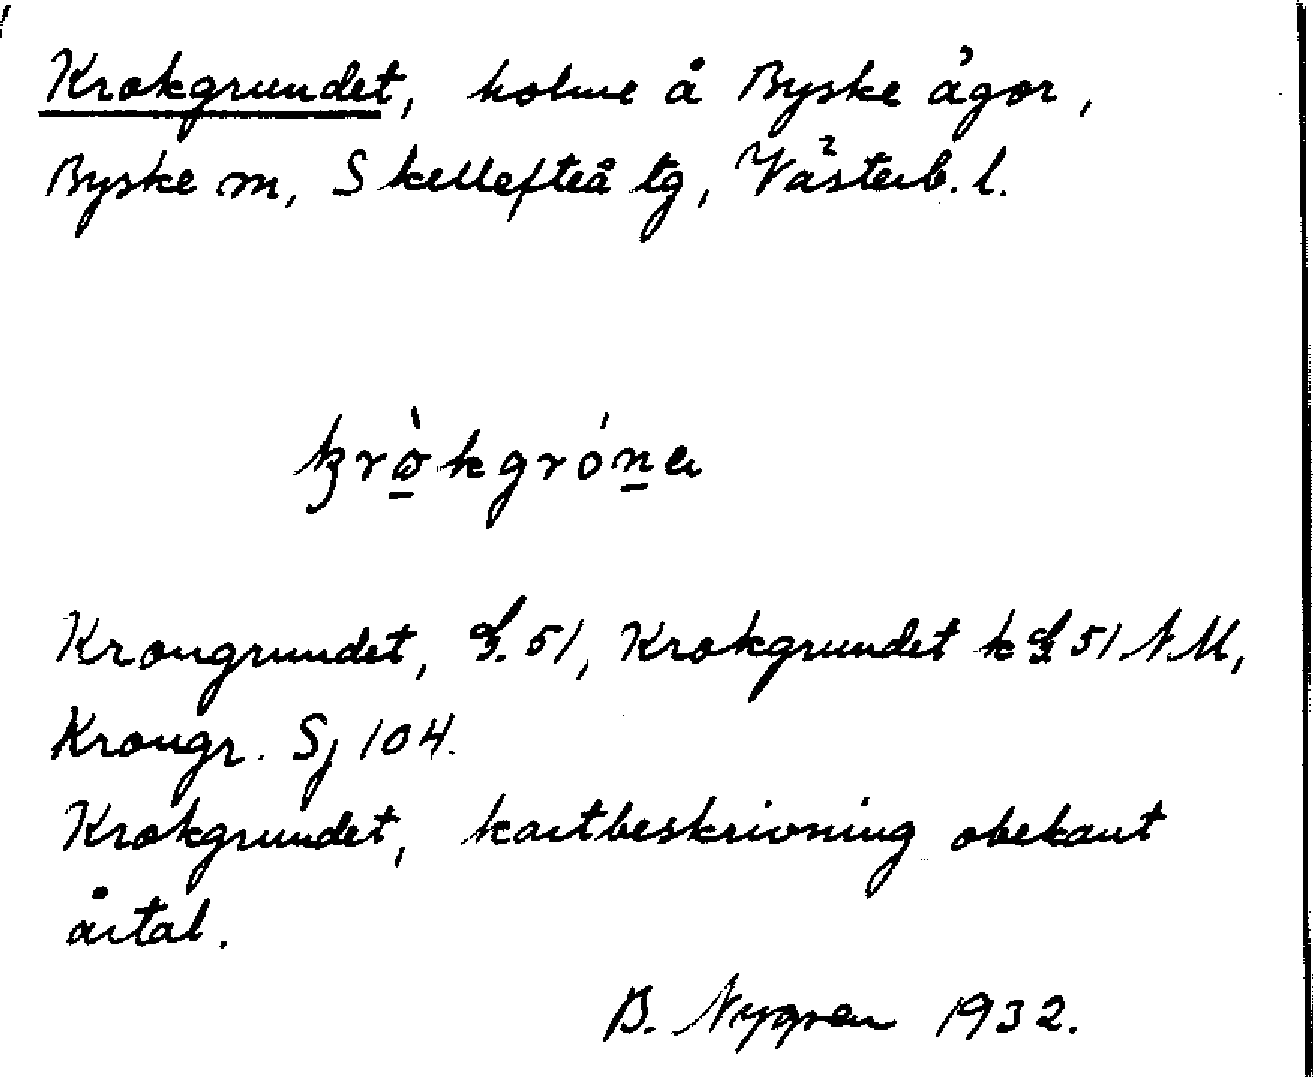 Krokgrundet, holme å Byske ägor,
Byske sn, Skellefteå tg, Västerb. l.
kròkgróna
Krongrundet, G. 51, Krokgrundet k G. 51 NM,
Krongr. Sj 104.
Krokgrundet, kartbeskrivning obekant
årtal.
B. Nygren 1932.